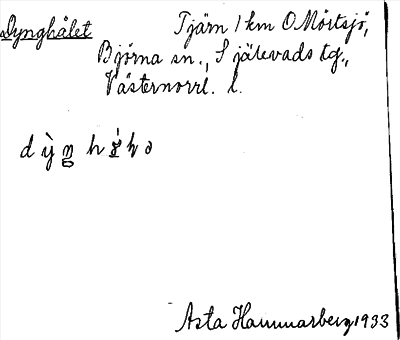 Dynghålet Tjärn 1 km O Mörtsjö,
Björna sn., Själevads tg.,
Västernorrl. l.
Asta Hammarberg 1933